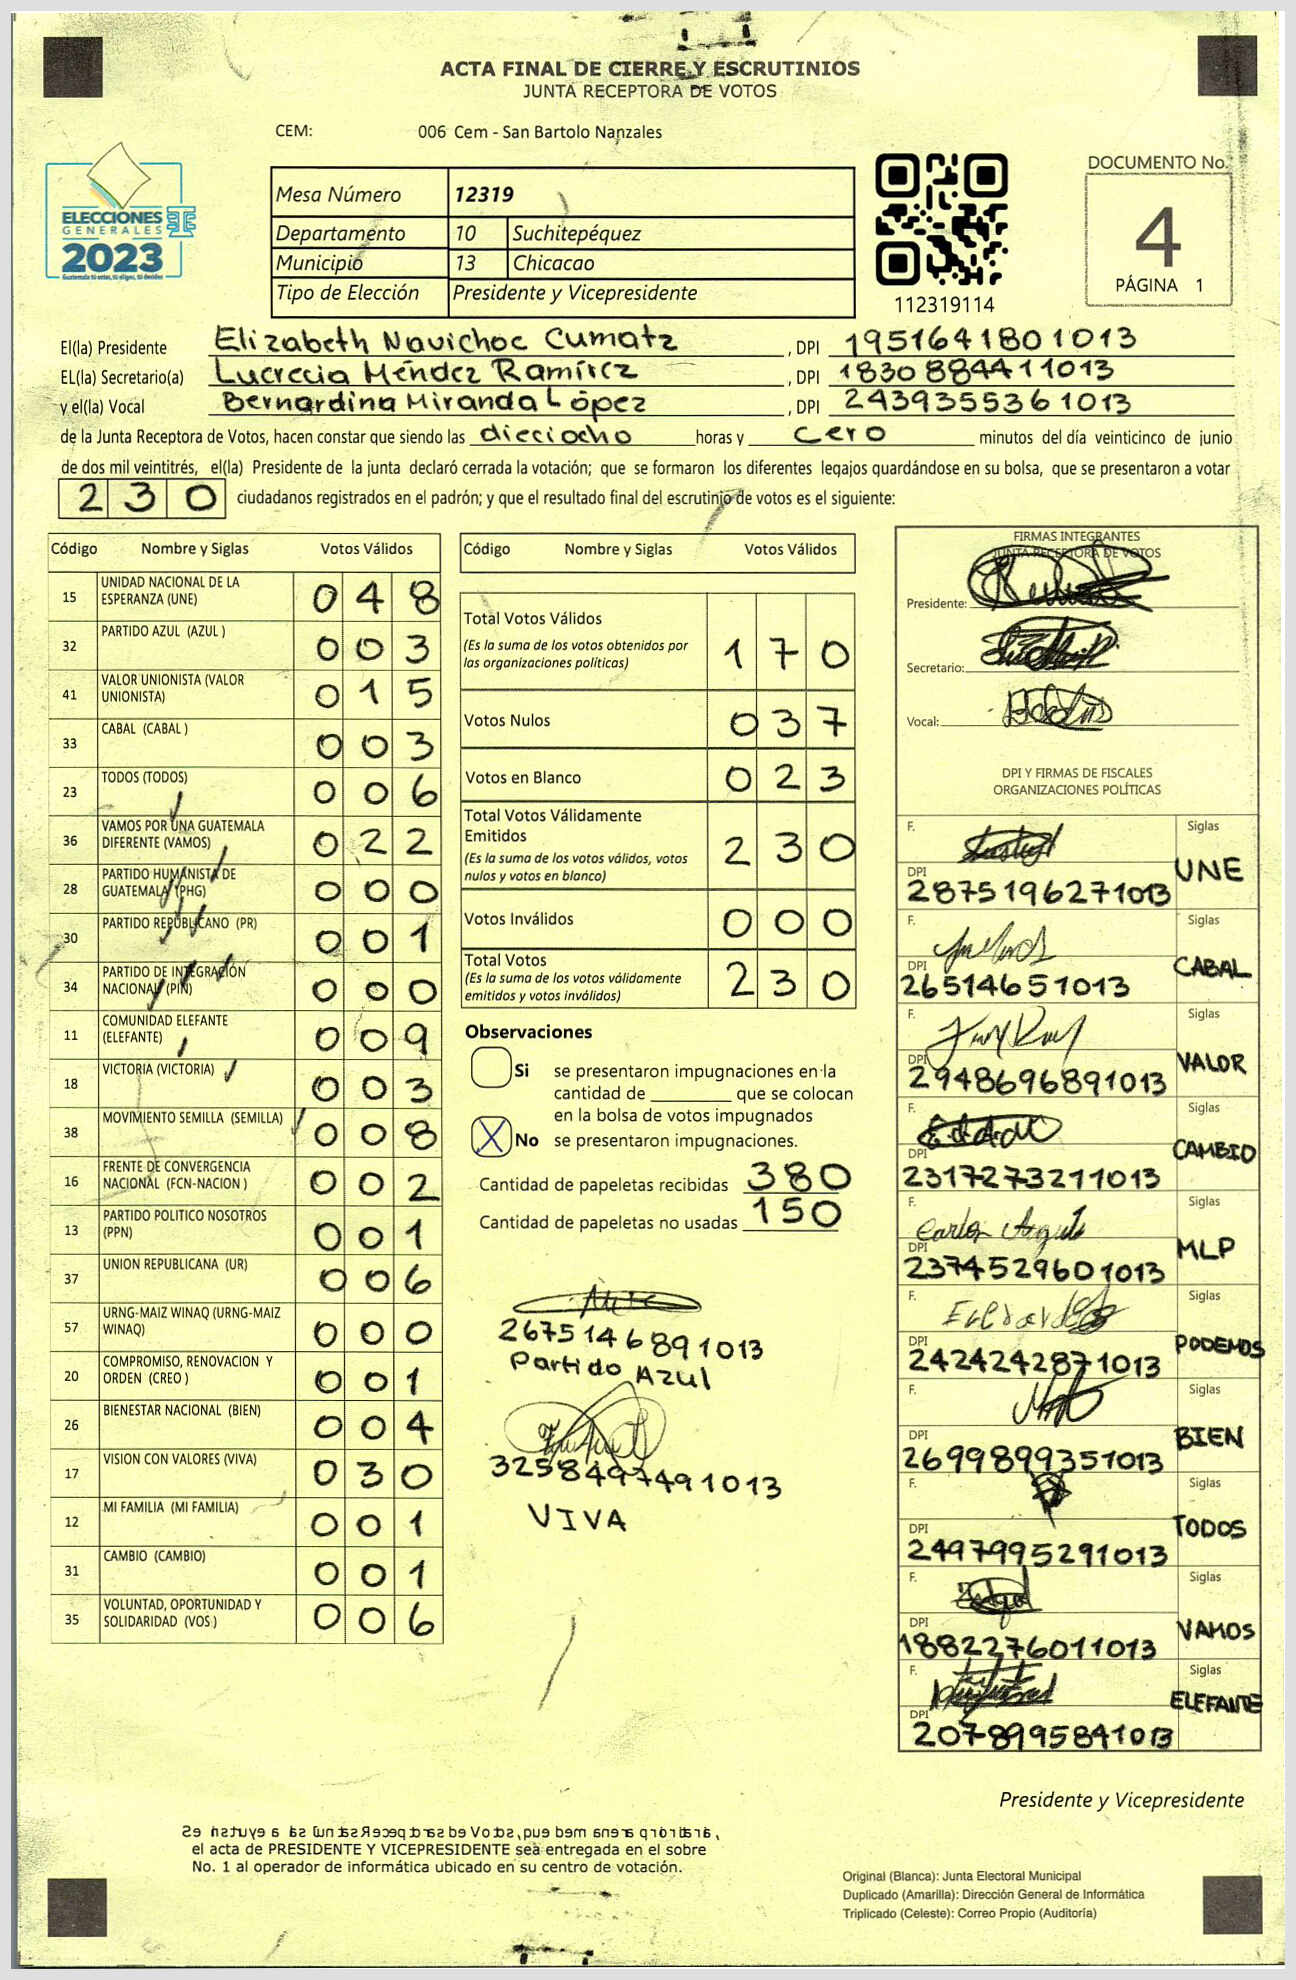 ACTA FINAL DE CIERRE Y ESCRUTINIOS
JUNTA RECEPTORA DE VOTOS
CEM: 006 Cem - San Bartolo Nanzales
ELECCIONES
GENERALES
2023
Mesa Número 12319
Departamento 10 Suchitepéquez
Municipio 13 Chicacao
Tipo de Elección Presidente y Vicepresidente
112319114
DOCUMENTO No.
4
PÁGINA 1
El(la) Presidente Elizabeth Navichoc Cumatz , DPI 1951641801013
EL(la) Secretario(a) Lucrecia Méndez Ramírez , DPI 1830884411013
y el(la) Vocal Bernardina Miranda López , DPI 2439355361013
de la Junta Receptora de Votos, hacen constar que siendo las dieciocho horas y cero minutos del día veinticinco de junio
de dos mil veintitrés, el(la) Presidente de la junta declaró cerrada la votación; que se formaron los diferentes legajos guardándose en su bolsa, que se presentaron a votar
230 ciudadanos registrados en el padrón; y que el resultado final del escrutinio de votos es el siguiente:
Código Nombre y Siglas Votos Válidos
15 UNIDAD NACIONAL DE LA ESPERANZA (UNE) 048
32 PARTIDO AZUL (AZUL ) 003
41 VALOR UNIONISTA (VALOR UNIONISTA) 015
33 CABAL (CABAL ) 003
23 TODOS (TODOS) 006
36 VAMOS POR UNA GUATEMALA DIFERENTE (VAMOS) 022
28 PARTIDO HUMANISTA DE GUATEMALA (PHG) 000
30 PARTIDO REPUBLICANO (PR) 001
34 PARTIDO DE INTEGRACIÓN NACIONAL (PIN) 000
11 COMUNIDAD ELEFANTE (ELEFANTE) 009
18 VICTORIA (VICTORIA) 003
38 MOVIMIENTO SEMILLA (SEMILLA) 008
16 FRENTE DE CONVERGENCIA NACIONAL (FCN-NACION ) 002
13 PARTIDO POLITICO NOSOTROS (PPN) 001
37 UNION REPUBLICANA (UR) 006
57 URNG-MAIZ WINAQ (URNG-MAIZ WINAQ) 000
20 COMPROMISO, RENOVACION Y ORDEN (CREO ) 001
26 BIENESTAR NACIONAL (BIEN) 004
17 VISION CON VALORES (VIVA) 030
12 MI FAMILIA (MI FAMILIA) 001
31 CAMBIO (CAMBIO) 001
35 VOLUNTAD, OPORTUNIDAD Y SOLIDARIDAD (VOS ) 006
Código Nombre y Siglas Votos Válidos
Total Votos Válidos 170
(Es la suma de los votos obtenidos por
las organizaciones políticas)
Votos Nulos 037
Votos en Blanco 023
Total Votos Válidamente
Emitidos 230
(Es la suma de los votos válidos, votos
nulos y votos en blanco)
Votos Inválidos 000
Total Votos 230
(Es la suma de los votos válidamente
emitidos y votos inválidos)
Observaciones
Si se presentaron impugnaciones en la
cantidad de ________ que se colocan
en la bolsa de votos impugnados
X No se presentaron impugnaciones.
Cantidad de papeletas recibidas 380
Cantidad de papeletas no usadas 150
2675146891013
Partido Azul
3258497491013
VIVA
FIRMAS INTEGRANTES
JUNTA RECEPTORA DE VOTOS
Presidente:
Secretario:
Vocal:
DPI Y FIRMAS DE FISCALES
ORGANIZACIONES POLÍTICAS
F. Siglas
DPI 2875196271013 UNE
F. Siglas
DPI 26514651013 CABAL
F. Siglas
DPI 2948696891013 VALOR
F. Siglas
DPI 2317273211013 CAMBIO
F. Carlos Siglas
DPI 2374529601013 MLP
F. Siglas
DPI 2424242871013 PODEMOS
F. Siglas
DPI 2699899351013 BIEN
F. Siglas
DPI 2497995291013 TODOS
F. Siglas
DPI 1882276011013 VAMOS
F. Siglas
DPI 2078995841013 ELEFANTE
Presidente y Vicepresidente
el acta de PRESIDENTE Y VICEPRESIDENTE sea entregada en el sobre
No. 1 al operador de informática ubicado en su centro de votación.
Original (Blanca): Junta Electoral Municipal
Duplicado (Amarilla): Dirección General de Informática
Triplicado (Celeste): Correo Propio (Auditoría)